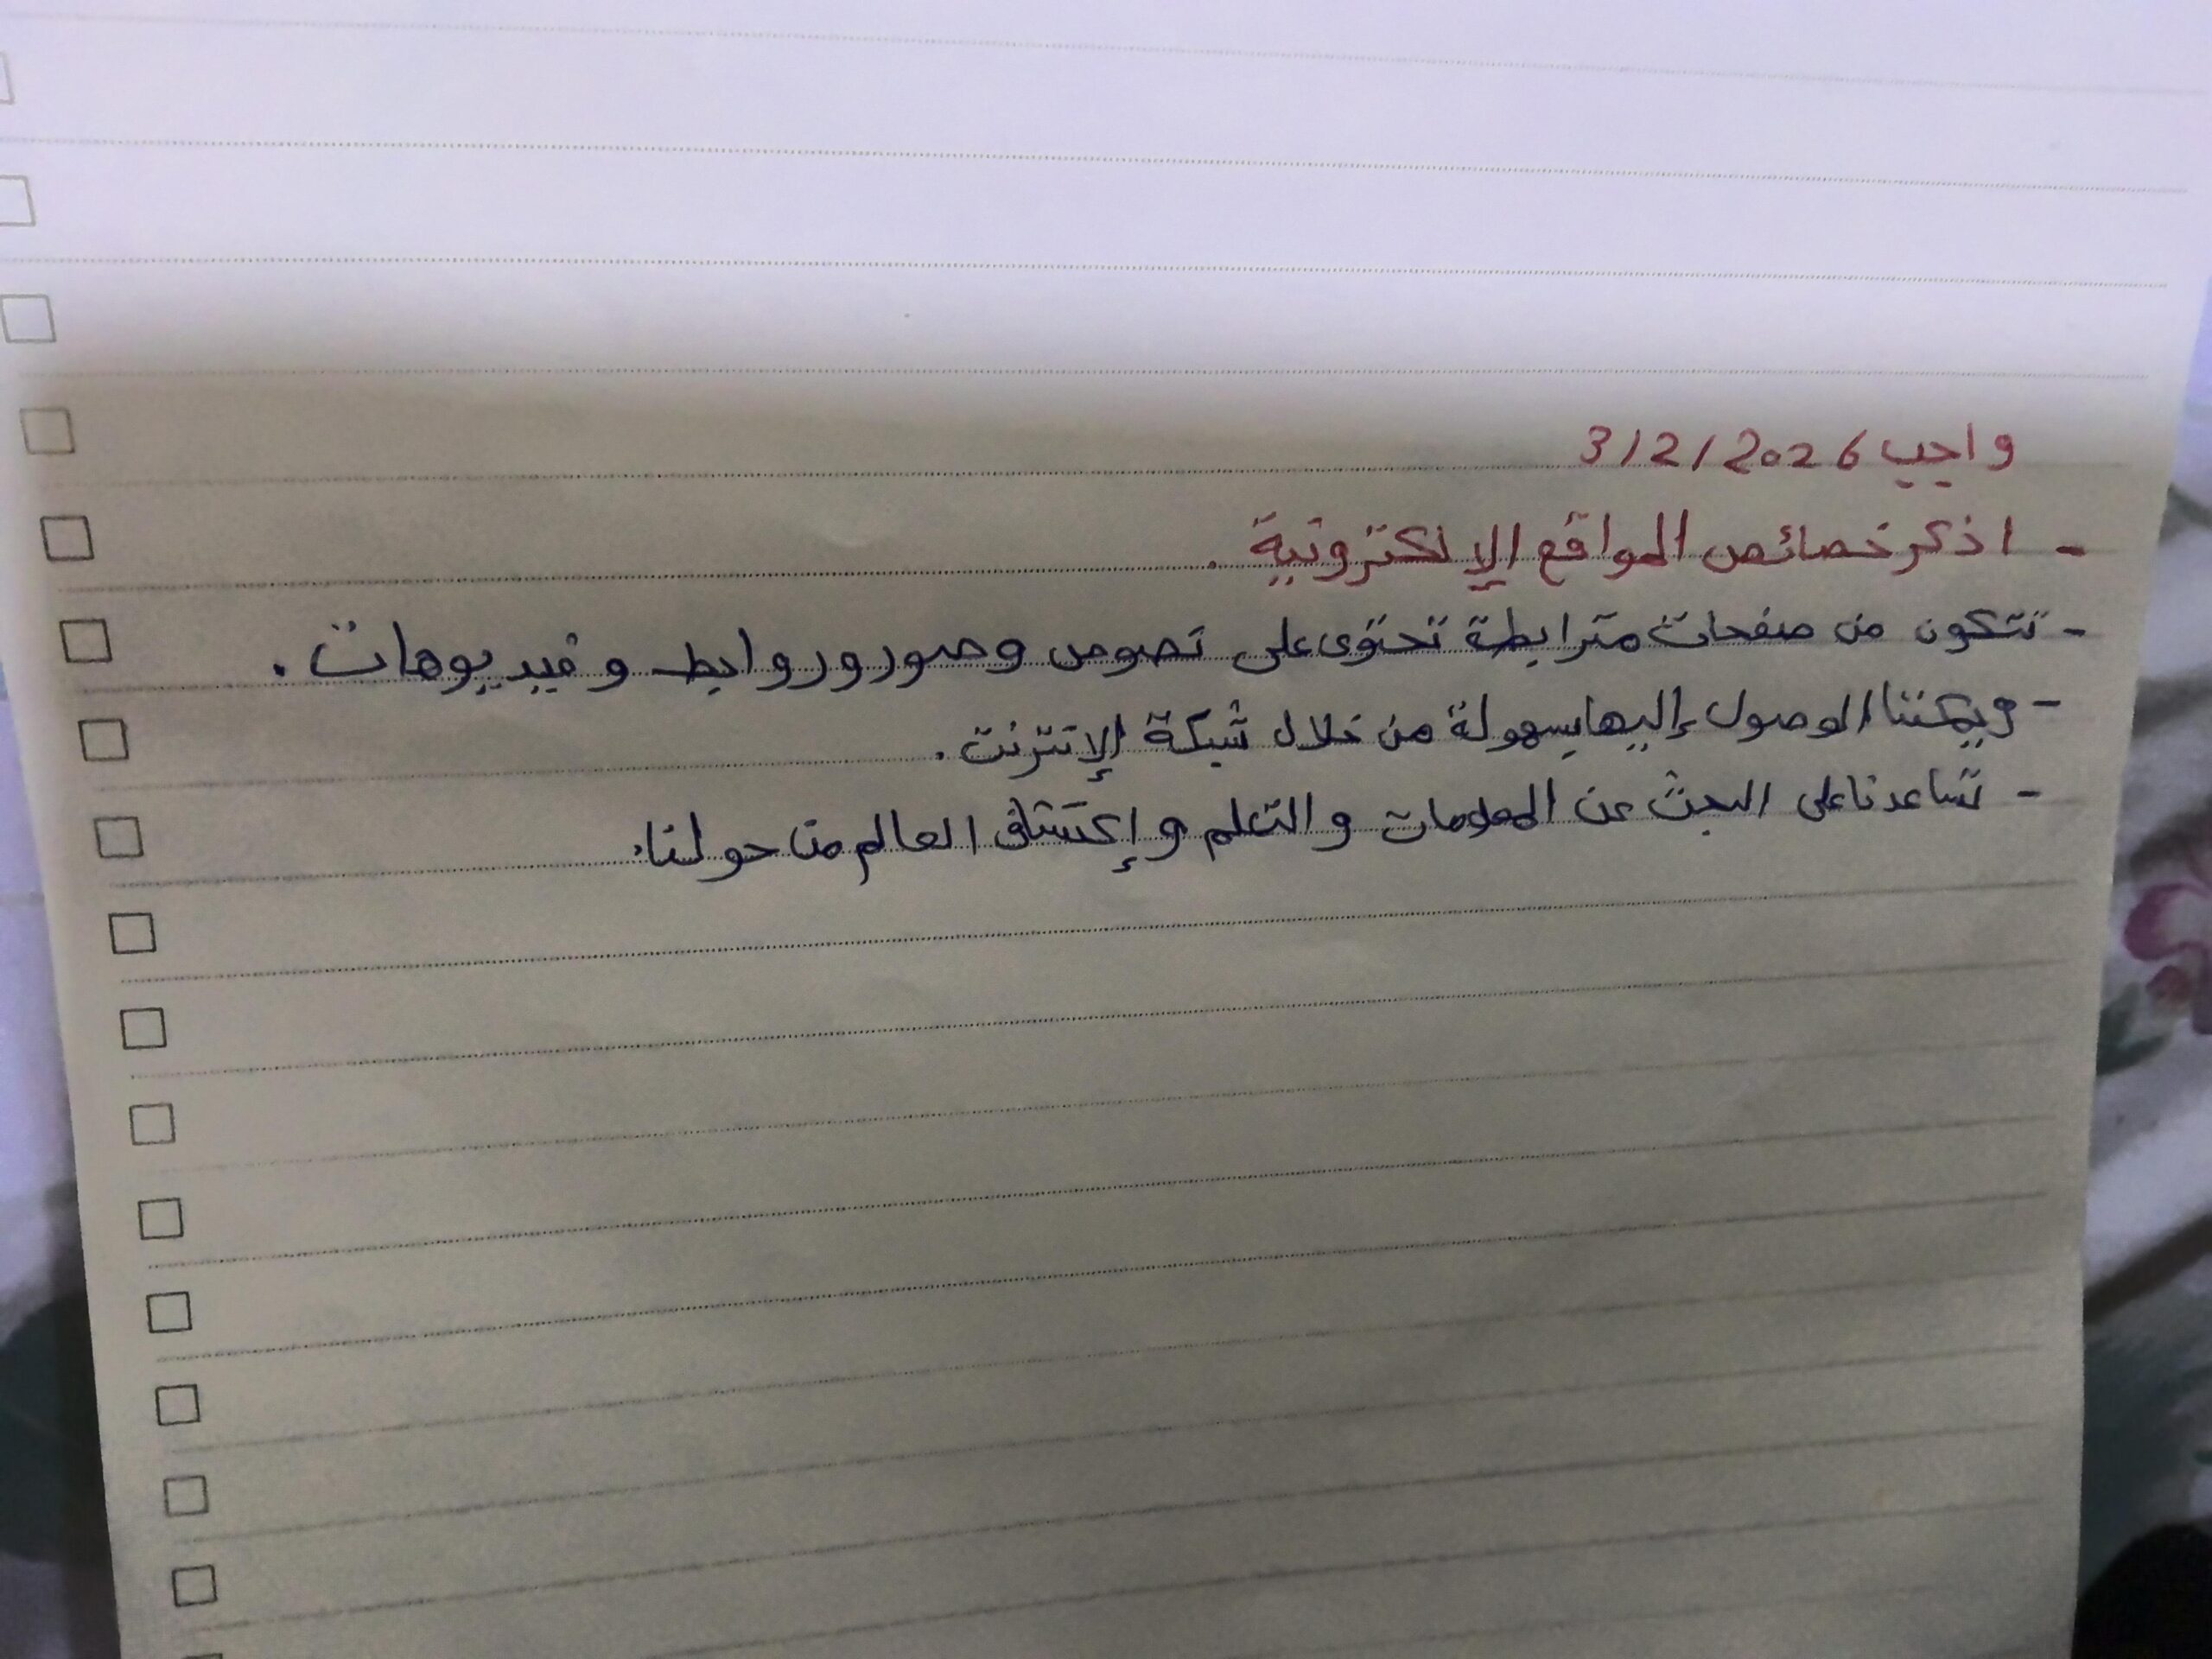 واجب 3/2/2026
- اذكر خصائص المواقع الإلكترونية .
- تتكون من صفحات مترابطة تحتوى على نصوص وصور وروابط وفيديوهات .
- ويمكننا الوصول إليها بسهولة من خلال شبكة الإنترنت .
- تساعدنا على البحث عن المعلومات والتعلم وإكتشاف العالم من حولنا .